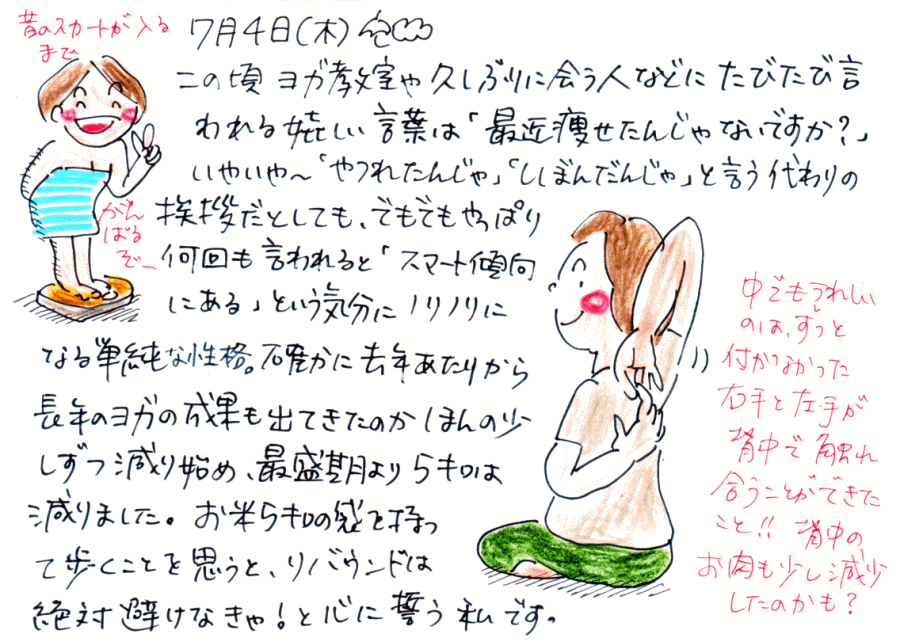 昔のスカートが入る
まで
7月4日(木)
この頃ヨガ教室や久しぶりに会う人などにたびたび言
われる嬉しい言葉は「最近痩せたんじゃないですか?」
いやいや〜「やつれたんじゃ」「しぼんだんじゃ」と言う代わりの
挨拶だとしても、でもでもやっぱり
何回も言われると「スマート傾向
にある」という気分にノリノリに
なる単純な性格。確かに去年あたりから
長年のヨガの成果も出てきたのかほんの少
しずつ減り始め、最盛期より5キロは
減りました。お米5キロの袋を持っ
て歩くことを思うと、リバウンドは
絶対避けなきゃ!と心に誓う私です。
がん
ばる
ぞー
中でもうれしい
のは、ずっと
付かなかった
右手と左手が
背中で触れ
合うことができた
こと!!背中の
お肉も少し減少
したのかも?